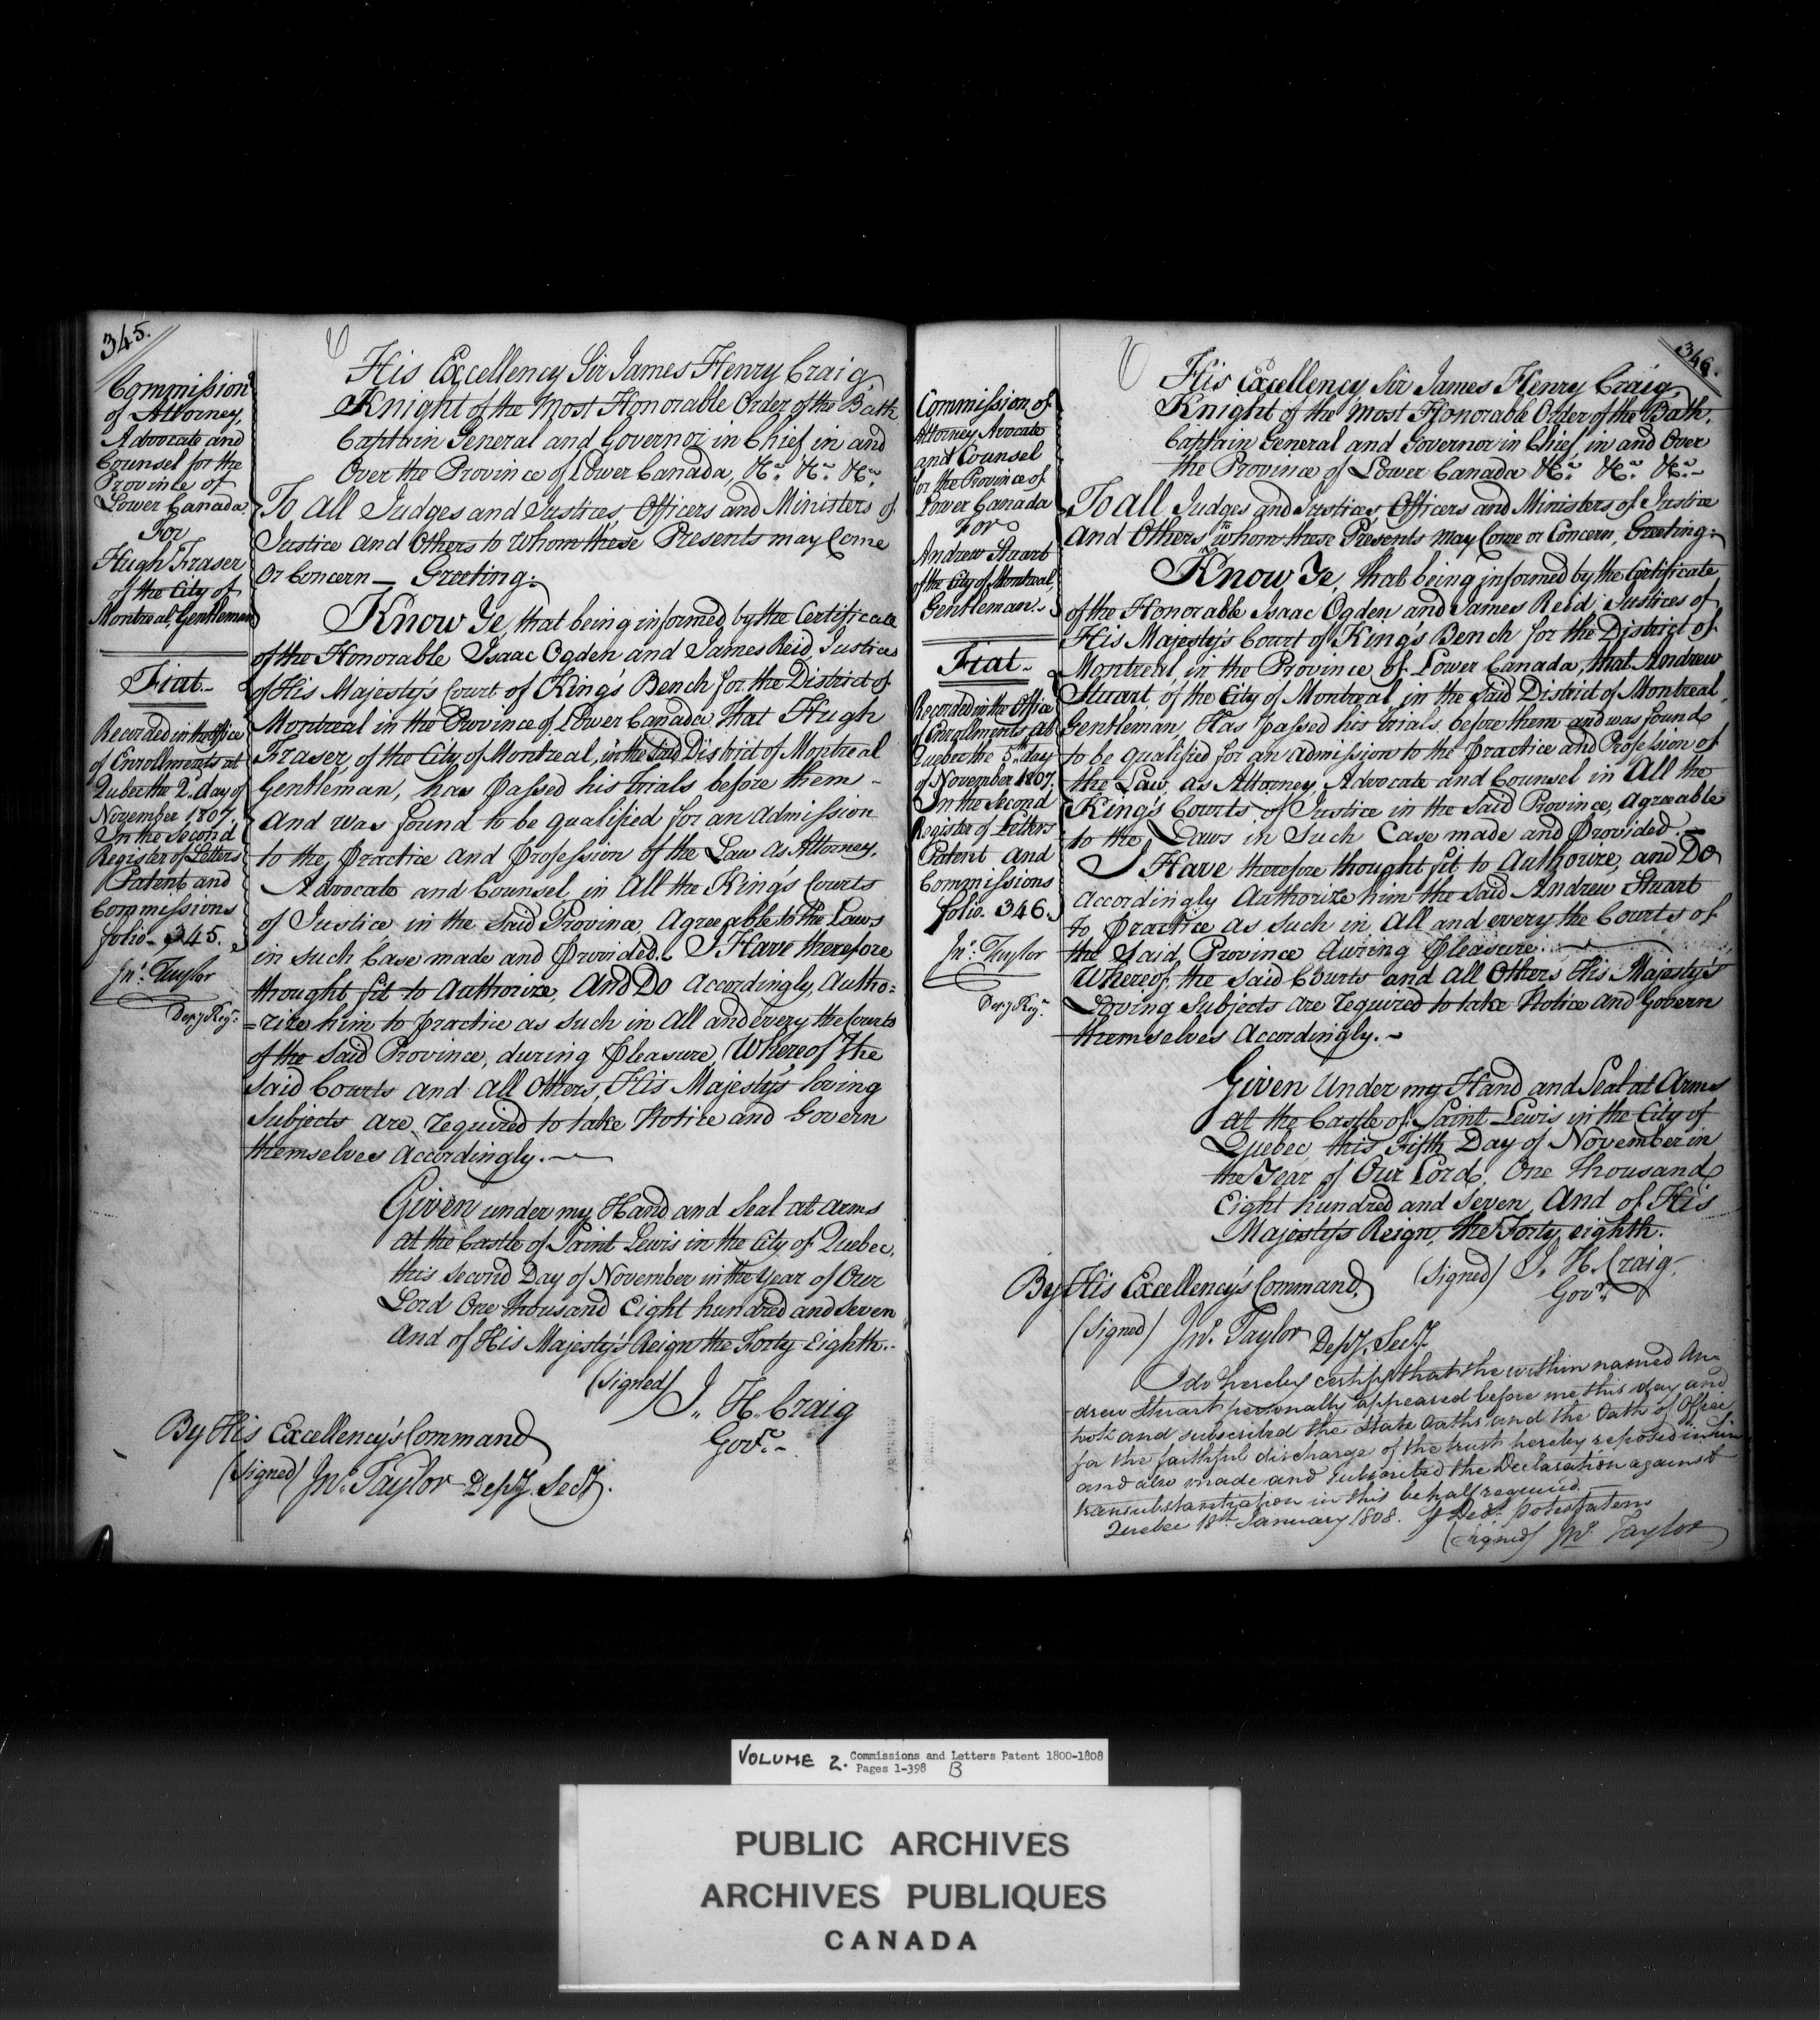 345.
Commission
of Attorney,
Advocate and
Counsel for the
Province of
Lower Canada
For
Hugh Fraser
of the City of
Montreal, Gentleman
Fiat.
Recorded in the Office
of Enrollments at
Quebec the 2. day of
November 1807,
In the Second
Register of Letters
Patent and
Commissions
folio 345.
Jnº. Taylor
Depy Regr.
His Excellency Sir James Henry Craig,
Knight of the Most Honorable Order of the Bath
Captain General and Governor in Chief in and
Over the Province of Lower Canada, &ca. &ca. &ca.
To All Judges and Justices, Officers and Ministers of
Justice and Others to whom these Presents may Come
Or Concern — Greeting:
Know Ye, that being informed by the Certificate
of the Honorable Isaac Ogden and James Reid, Justices
of His Majesty's Court of King's Bench for the District of
Montreal in the Province of Lower Canada, That Hugh
Fraser, of the City of Montreal, in the Said District of Montreal
Gentleman, has passed his trials before them
And was found to be qualified for an Admission
to the practice and profession of the Law as Attorney,
Advocate and Counsel, in All the King's Courts
of Justice in the Said Province, Agreeable to the Laws
in such Case made and provided. I Have therefore
thought fit to Authorize, And Do Accordingly, Autho=
=rize him to practice as such in All and every the Courts
of the Said Province, during pleasure, Whereof The
Said Courts and all Others, His Majesty's loving
Subjects are required to take Notice and Govern
themselves Accordingly.
Given under my Hand and Seal at Arms
at the Castle of Saint Lewis in the City of Quebec,
this Second Day of November in the Year of Our
Lord One thousand Eight hundred and Seven
And of His Majesty's Reign the Forty Eighth.
(Signed) J. H. Craig
Govr.
By His Excellency's Command
(Signed) Jnº. Taylor Depy. Secy.
346.
Commission of
Attorney Avocate
and Counsel
for the Province of
Lower Canada
For
Andrew Stuart
of the City of Montreal,
Gentleman.
Fiat.
Recorded in the Office
of Enrollments at
Quebec the 5th day
of November 1807.
In the Second
Register of Letters
Patent and
Commissions
folio. 346.
Jnº. Taylor
Depy Regr.
His Excellency Sir James Henry Craig,
Knight of the most Honorable Order of the Bath,
Captain General and Governor in Chief, in and Over
the Province of Lower Canada &ca. &ca. &ca.
To all Judges and Justices, Officers and Ministers of Justice
And Others to whom these Presents may Come or Concern, Greeting:
Know Ye, that being informed by the Certificate
of the Honorable Isaac Ogden and James Reid, Justices of
His Majesty's Court of King's Bench for the District of
Montreal, in the Province of Lower Canada, that Andrew
Stuart, of the City of Montreal in the Said District of Montreal,
Gentleman, Has passed his trials before them and was found
to be qualified for an admission to the practice and Profession of
the Law, as Attorney, Advocate and Counsel in All the
King's Courts of Justice in the Said Province, Agreeable
to the Laws in Such Case made and Provided.
I Have therefore thought fit to Authorize, and Do
Accordingly Authorize him the said Andrew Stuart
to practice as such in all and every the Courts of
the Said Province during pleasure.
Whereof the said Courts and all Others His Majesty's
Loving Subjects are required to take Notice and Govern
themselves Accordingly.
Given Under my Hand and Seal at Arms
at the Castle of Saint Lewis in the City of
Quebec, this Fifth Day of November in
the Year of Our Lord, One thousand
Eight hundred and Seven, And of His
Majesty's Reign, the Forty eighth.
By His Excellency's Command, (Signed) J. H. Craig,
Govr.
(Signed) Jnº. Taylor Depy. Secy.
I do hereby certify that the within named An-
drew Stuart personally appeared before me this day and
took and subscribed the state oaths and the Oath of Office
for the faithful discharge of the trust hereby reposed in him
and also made and subscribed the Declaration against
transubstantiation in this behalf required.
Quebec 18th January 1808. Dedt. potestatem
(signed) Jnº Taylor
VOLUME 2. Commissions and Letters Patent 1800-1808
Pages 1-398 B
PUBLIC ARCHIVES
ARCHIVES PUBLIQUES
CANADA